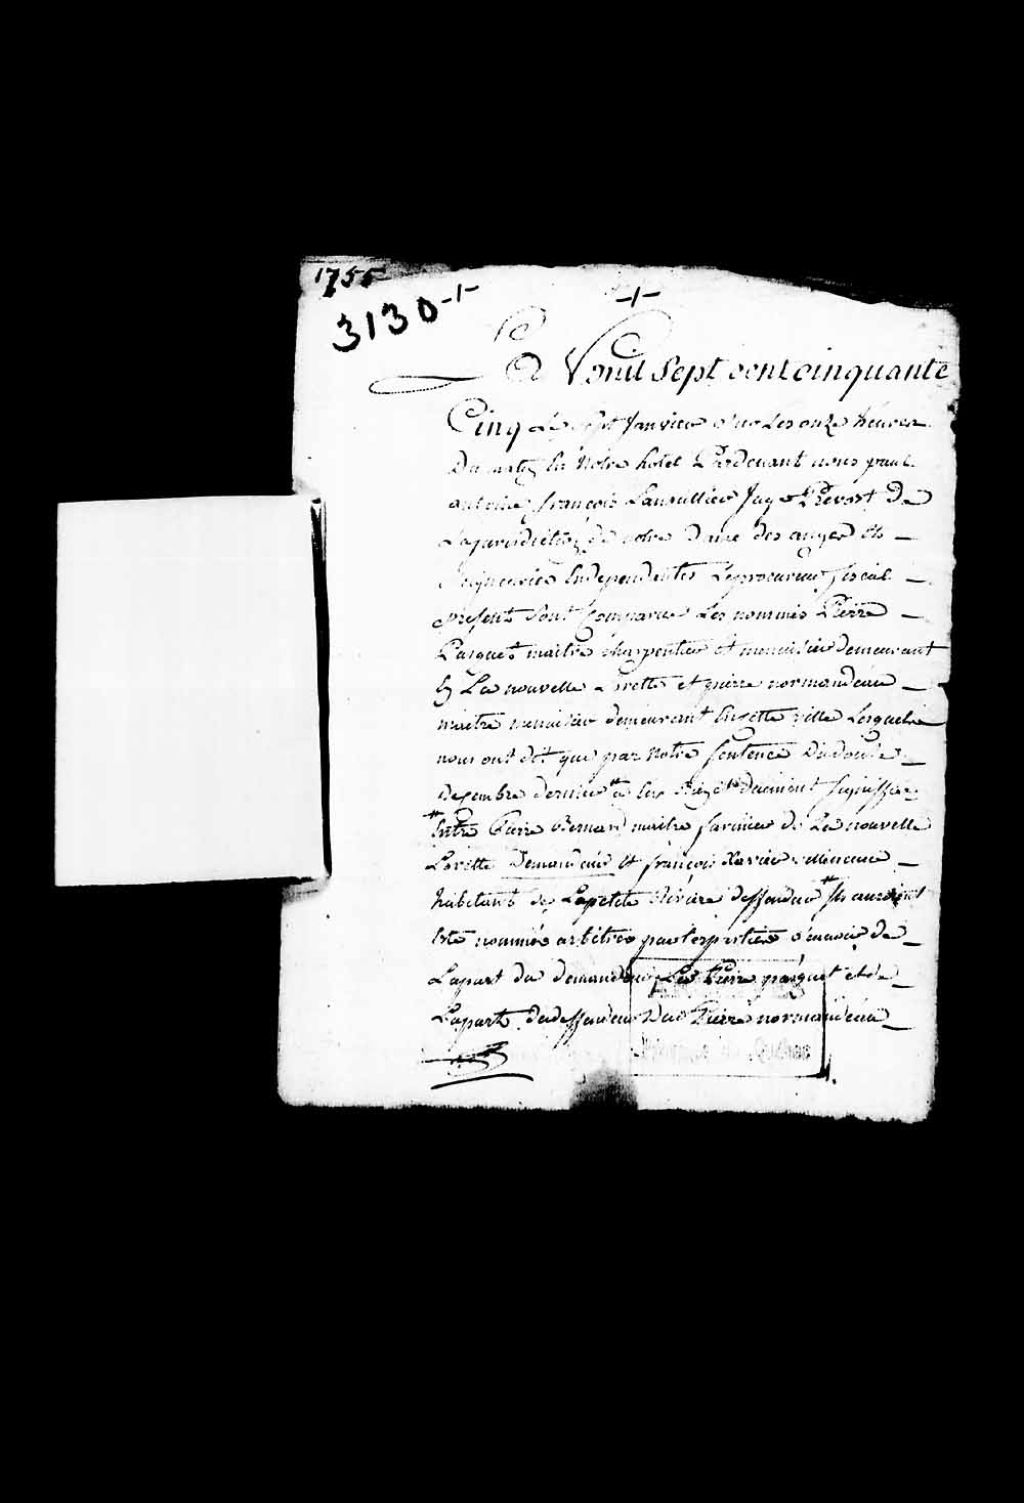 1755
3130-1-
-1-
Le Vomil Sept cent cinquante
Cinq Le sept Janvier sur Les onze heures
Du matin En Notre hotel Pardevant nous paul
antoine françois Lanoullier Juge Prevost De
La jurisdiction de notre Dame des anges Et
Seigneuries Independentes Le procureur fiscal
present Sont Comparus Les nommés Pierre
Pasquet maitre charpentier et menuisier demeurant
En La nouvelle Lorette et pierre normandeau
maitre menuisier demeurant En cette ville Lesquels
nous ont dit que par Notre sentence Du douze
Decembre dernier duement signiffiée
# Entre Pierre Bernard maitre farinier de La nouvelle
Lorette Demandeur Et françois Xavier
habitant de La petite Riviere deffendeur # Ils auroient
Eté nommés arbitres par les parties sçavoir de
La part du demandeur Led Pierre pasquet et de
La part du deffendeur Led Pierre normandeau